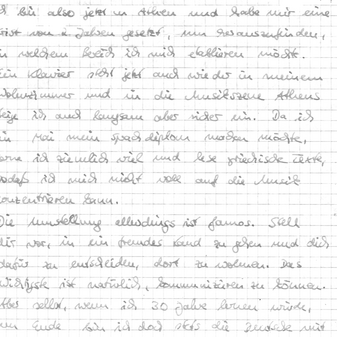 bin also jetzt in Athen und habe mir eine
Frist von 2 Jahren gesetzt, um herauszufinden,
in welchem Bereich ich mich etablieren möchte.
Ein Klavier steht jetzt auch wieder in meinem
Wohnzimmer und in die Musikszene Athens
ich auch langsam aber sicher ein. Da ich
im Mai mein Sprachdiplom machen möchte,
lerne ich ziemlich viel und lese griechische Texte,
sodaß ich mich nicht voll auf die Musik
konzentrieren kann.
Die Umstellung allerdings ist famos. Stell
dir vor, in ein fremdes Land zu gehen und dich
dafür zu entscheiden, dort zu wohnen. Das
Wichtigste ist natürlich, kommunizieren zu können.
Aber selbst, wenn ich 30 Jahre lernen würde,
am Ende bin ich doch stets die Deutsche mit